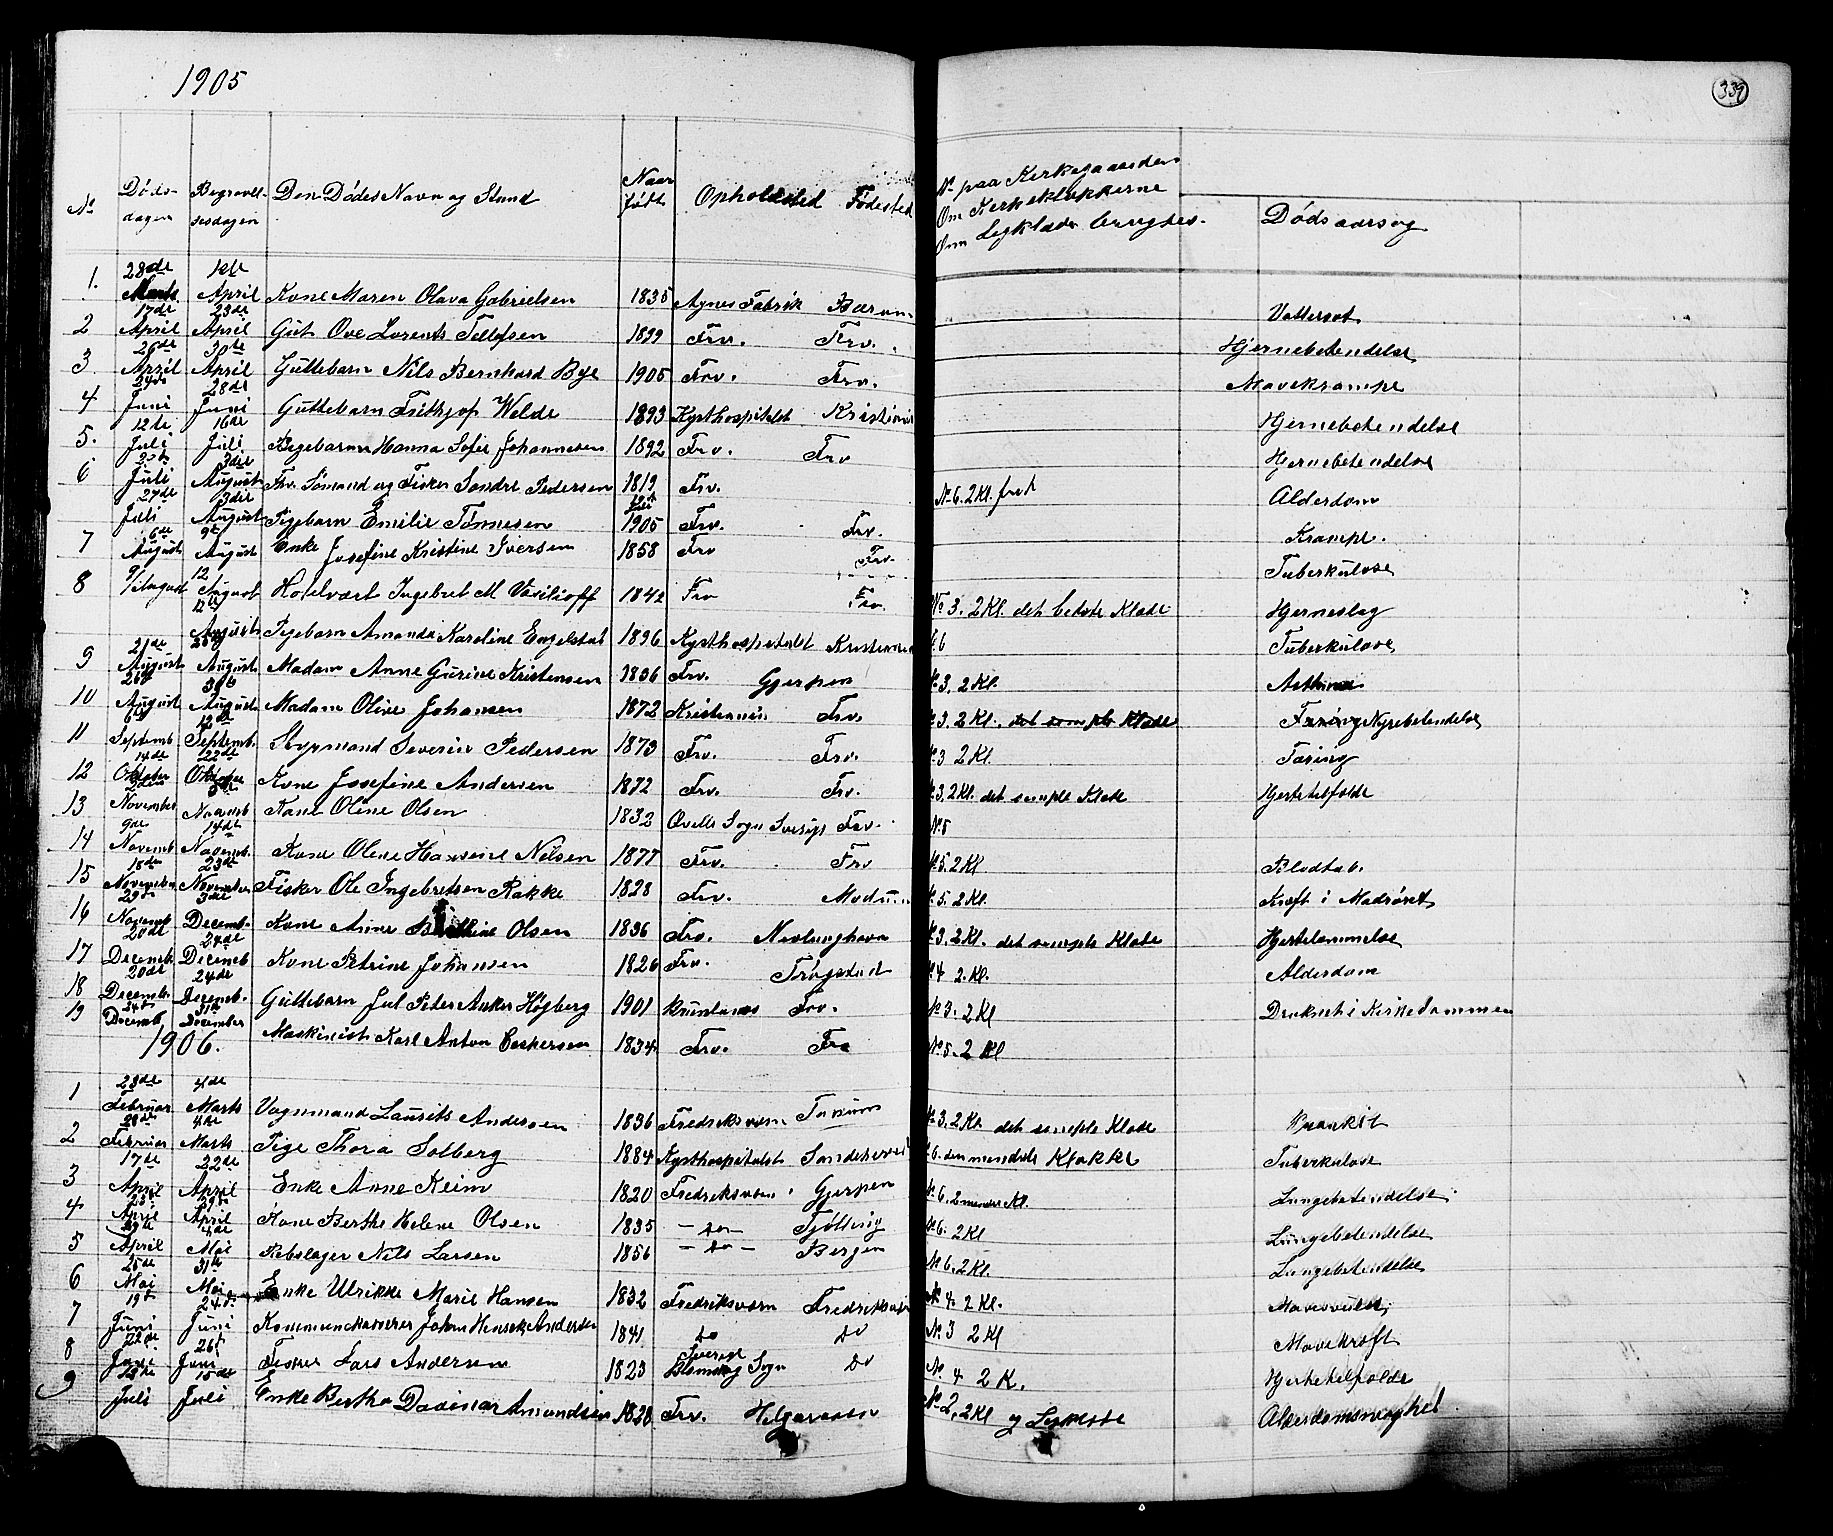 1905
339
No
Døds-dagen
Begravelsesdagen
Den Dødes Navn og Stand
Naar født
Opholdsted
Fødested
No paa Kirkegaarden
Om Kirkeklokkerne
Om Ligklæder benyttes.
Dødsaarsag
1. 28de Marts 1ste April Kone Maren Olava Gabrielsen 1835 Agnes Fabrik Bærum Vattersot
2 17de April 23de April Gut Ove Lorents Tellefsen 1899 Frv. Frv. Hjernebetendelse
3 26de April 30te April Guttebarn Nils Bernhard Bye 1905 Frv. Frv. Mavekrampe
4 24de Juni 28de Juni Guttebarn Frithjof Welde 1893 Kysthospitalet Kristiania Hjernebetendelse
5. 12te Juli 16de Juli Pigebarn Hanna Sofie Johannesen 1892 Frv. Frv Hjernebetendelse
6 Juli 3die August Fhv. Sømand og Fisker Søndre Pedersen 1819 Frv. No 6. 2 Kl. Alderdom
27de Juli 3die August Pigebarn Emilie Tønnesen 1905 Frv. Frv. Krampe.
7 6te August 9de August Enke Josefine Kristine Iversen 1858 Frv Frv. Tuberkulose
8 9/August 12 August Hotelvært Ingebret M Vasilioff 1842 Frv Frv. No 3. 2 Kl. det bedste Klæde Hjerneslag
12te August Pigebarn Amanda Karoline Engelstad 1896 Kysthospitalet Kristiania 6 Tuberkulose
9 21de August 25de August Madam Anne Gurine Kristensen 1836 Frv. Gjerpen No 3. 2 Kl. Asthma
10 26de August 30te August Madam Olive Johansen 1872 Kristiania Frv. No 3. 2 Kl. det simple Klæde Tæring Nyrebetendelse
11 6te Septemb. 12te Septemb. Styrmand Severin Pedersen 1873 Frv. Frv. No 3 2 Kl. Tæring
12 14de Oktober 22de Oktober Kone Josefine Andersen 1872 Frv. Frv. No 3. 2 Kl. det simple Klæde Hjertetilfælde
13 2den November 5te Novemb Kone Oline Olsen 1832 Qville Sogn Sverige Frv. No 5
14 9de Novemb 14de Novemb. Kone Olene Hansine Nilsen 1877 Frv. Frv No 5. 2 Kl Blodtab.
15 18de November 23de November Fisker Ole Ingebretsen Rakke 1828 Frv. Modum No 5. 2 Kl. Kræft i Madrøret
16 29de Novemb 3die Decemb. Kone Anne Olsen 1836 Frv. Nevlunghavn No 3. 2 Kl. det simple Klæde Hjertelammelse
17 20de Decemb. 24de Decemb Kone Petrine Johansen 1826 Frv. Trøgstad No 4 2. Kl. Alderdom
18 20de Decemb. 24de Decemb. Guttebarn Jul Peter Anker Høgberg 1901 Frv. No 3. 2 Kl Druknet i Kirkedammen
19 24de Decemb. 31te December Maskinist Karl Anton Caspersen 1834 Frv. Frv No 5. 2 Kl
1906.
1 28de Februar 4de Marts Vognmand Laurits Andersen 1836 Fredriksværn Tanum No 3. 2 Kl. det simple Klæde
2 28de Februar 4de Marts Pige Thora Solberg 1884 Kysthospitalet Sandeherred No 6. den mindste Klokke Tuberkulose
3 17de April 22de April Enke Anne Keim 1820 Fredriksværn Gjerpen No 6. 2 mindre Kl. Lungebetendelse
4 25de April 29de April Kone Berthe Helene Olsen 1835 - Do - Tjølling No 6. 2 Kl Lungebetendelse
5 29de April 4de Mai Rebslager Nils Larsen 1856 - Do - Bergen No 6. 2 Kl. Lungebetendelse
6 25de Mai 31te Mai Enke Ulrikke Marie Hansen 1832 Fredriksværn Fredriksværn No 4. 2 Kl.
7 19de Juni 24de Juni Johan Henrik Andersen 1841 Do Do No 3 2 Kl Mavekræft
8 22de Juni 26de Juni Fisker Lars Andersen 1823 Sverige Sogn Do No. 4 2 K. Hjertetilfælde
9 13de Juli 15de Juli Enke Berthe Davinar Amundsen 1828 Frv. Helgeraaen No 2, 2 Kl og Ligklæde Alderdomssvaghet